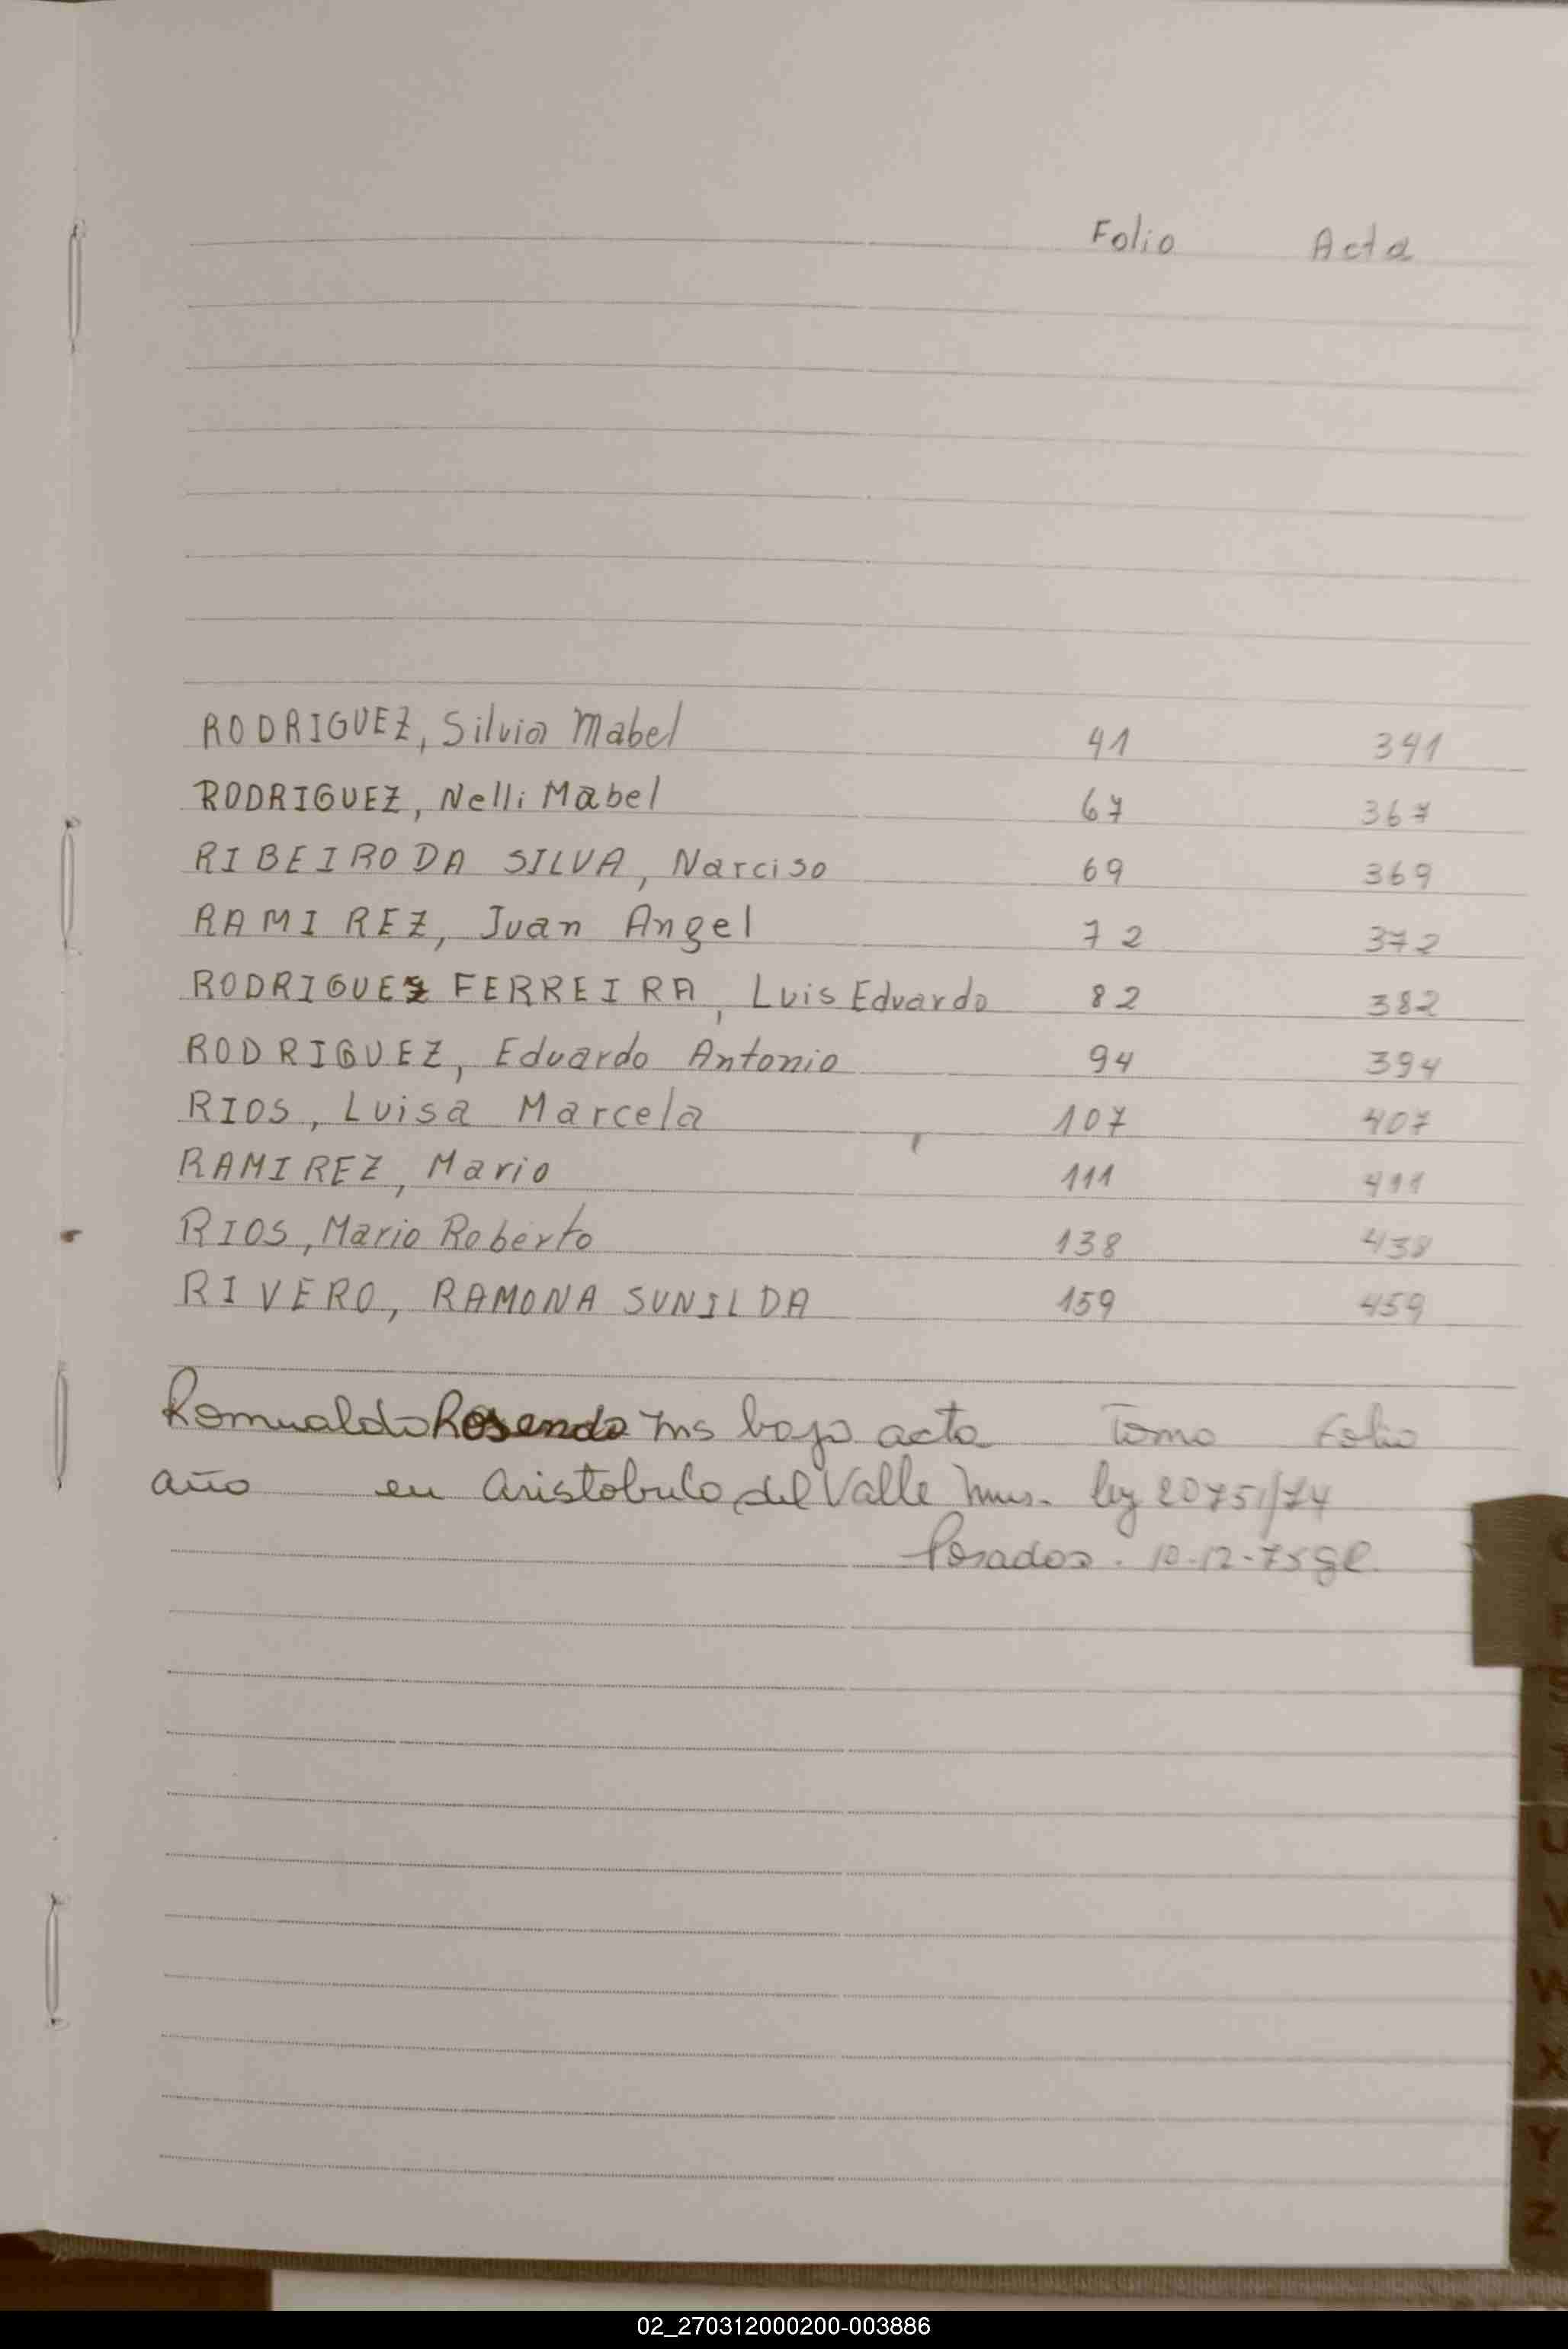 Folio Acta
RODRIGUEZ, Silvia Mabel 41 341
RODRIGUEZ, Nelli Mabel 67 367
RIBEIRO DA SILVA, Narciso 69 369
RAMIREZ, Juan Angel 72 372
RODRIGUEZ FERREIRA, Luis Eduardo 82 382
RODRIGUEZ, Eduardo Antonio 94 394
RIOS, Luisa Marcela 107 407
RAMIREZ, Mario 111 411
RIOS, Mario Roberto 138 438
RIVERO, RAMONA SUNILDA 159 459
Romualdo Rosendo ins bajo acta Tomo Folio
año en Aristobulo del Valle ley 20751/74
Posadas. 10-12-75
U
V
W
X
Y
Z
02_270312000200-003886